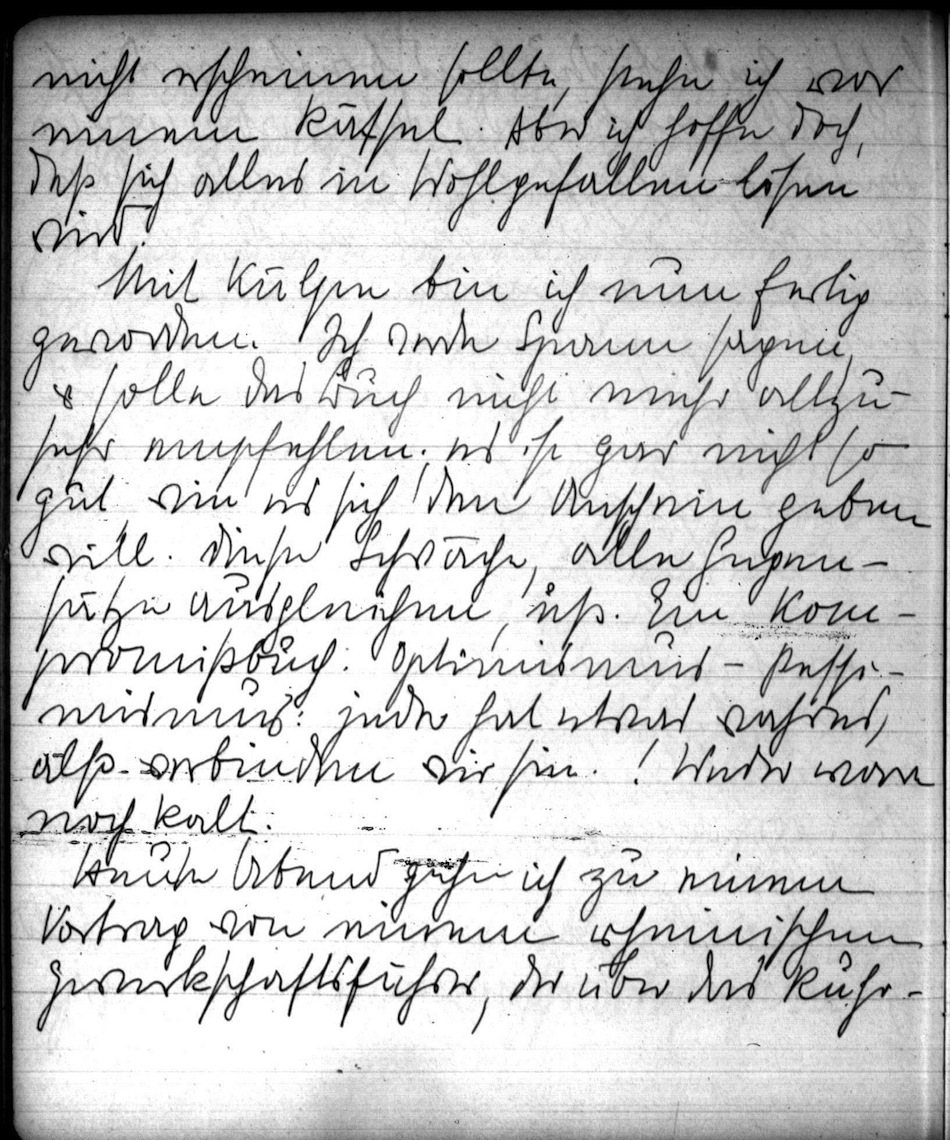 nicht erscheinen sollte, stehe ich vor
einem Rätsel. Aber ich hoffe doch,
daß sich alles in Wohlgefallen lösen
wird.
Mit Külpe bin ich nun fertig
geworden. Ich werde Spann sagen,
er solle das Buch nicht mehr allzu-
sehr empfehlen. es ist gar nicht so
gut wie es sich den Anschein geben
will. Diese Schwäche, alle Gegen-
sätze ausgleichen, Ein Kom-
promißbuch. Optimismus - Pessi-
mismus: jeder hat etwas wahres,
also verbinden wir sie. ! Weder warm
noch kalt.
Heute Abend gehe ich zu einem
Vortrag von einem rheinischen
Gewerkschaftsführer, der über das Ruhr-